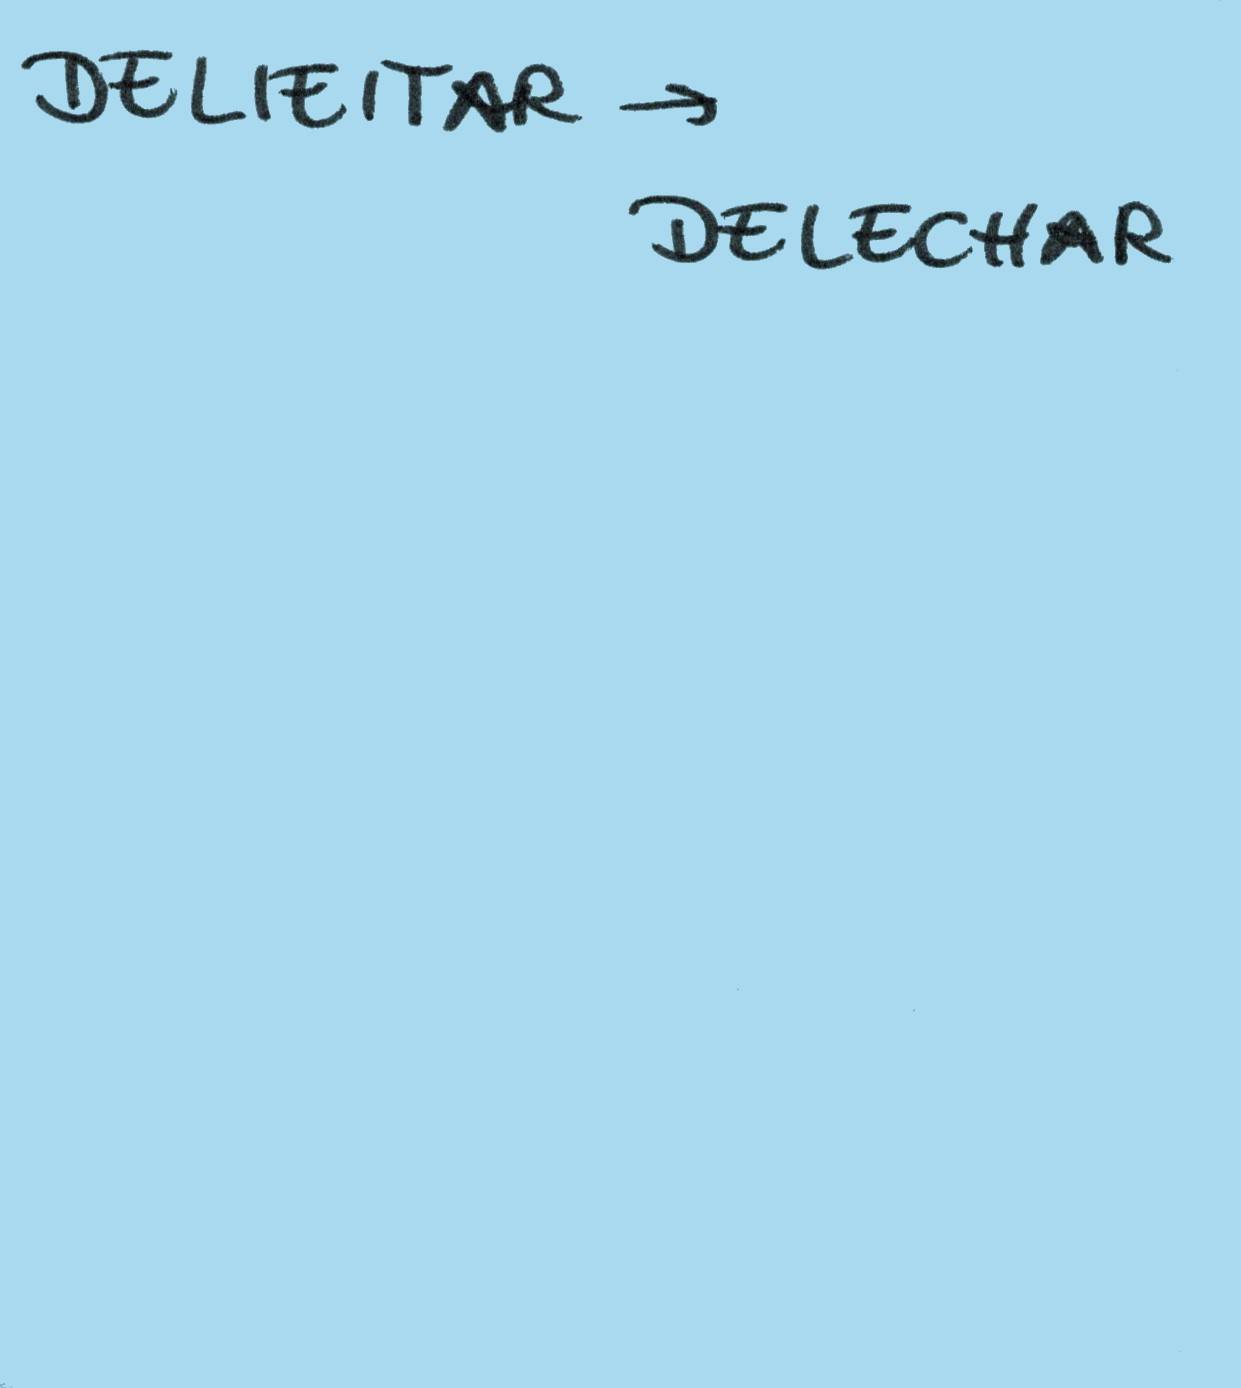 DELIEITAR →
DELECHAR